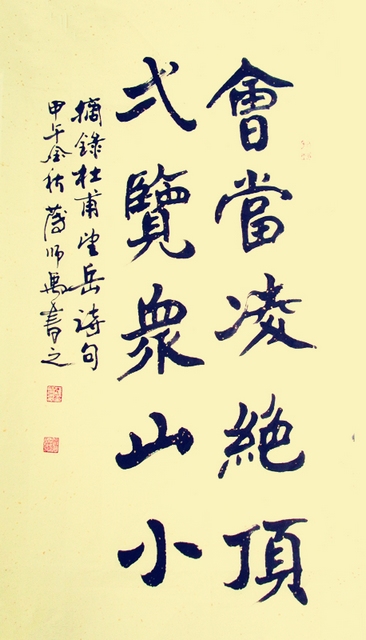 會當淩絕頂
弌覽衆山小
摘錄杜甫望岳詩句
甲午金秋 師禹書之